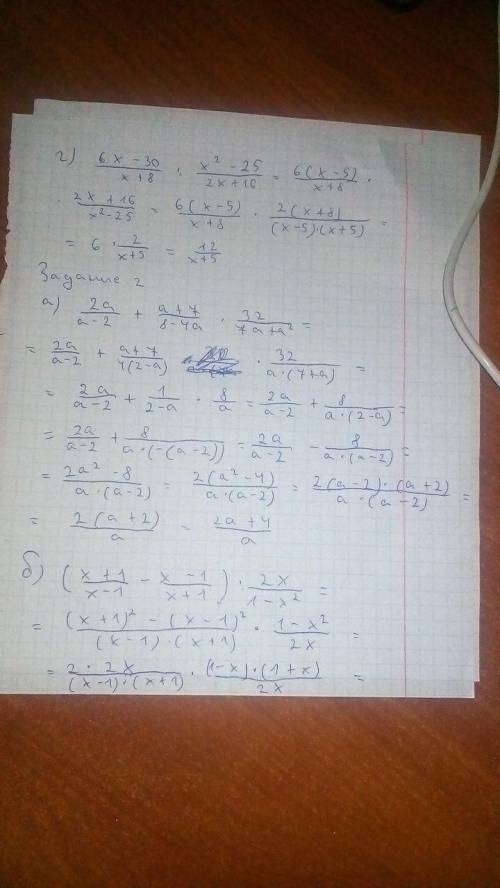 г) (6x - 30)/(x + 8) : (x² - 25)/(2x + 16) = (6(x - 5))/(x + 8) ·
· (2x + 16)/(x² - 25) = (6(x - 5))/(x + 8) · (2(x + 8))/((x - 5)·(x + 5)) =
= 6 · 2/(x + 5) = 12/(x + 5)
Задание 2
а) 2a/(a - 2) + (a + 7)/(8 - 4a) · 32/(7a + a²) =
= 2a/(a - 2) + (a + 7)/(4(2 - a)) · 32/(a·(7 + a)) =
= 2a/(a - 2) + 1/(2 - a) · 8/a = 2a/(a - 2) + 8/(a·(2 - a)) =
= 2a/(a - 2) + 8/(a·(-(a - 2))) = 2a/(a - 2) - 8/(a·(a - 2)) =
= (2a² - 8)/(a·(a - 2)) = (2(a² - 4))/(a(a - 2)) = (2(a - 2)·(a + 2))/(a·(a - 2)) =
= (2(a + 2))/a = (2a + 4)/a
б) ((x + 1)/(x - 1) - (x - 1)/(x + 1)) : 2x/(1 - x²) =
= ((x + 1)² - (x - 1)²)/((x - 1)·(x + 1)) · (1 - x²)/2x =
= (2 · 2x)/((x - 1)·(x + 1)) · ((1 - x)·(1 + x))/2x =